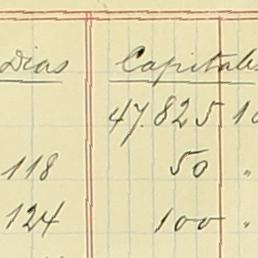 Dias Capitales
47.825 10
118 50 "
124 100 "